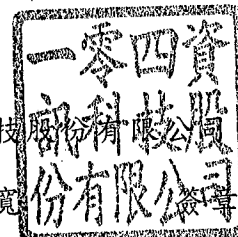 一零四資
訊科技股
份有限公司
技股份有限公司
寬 簽章